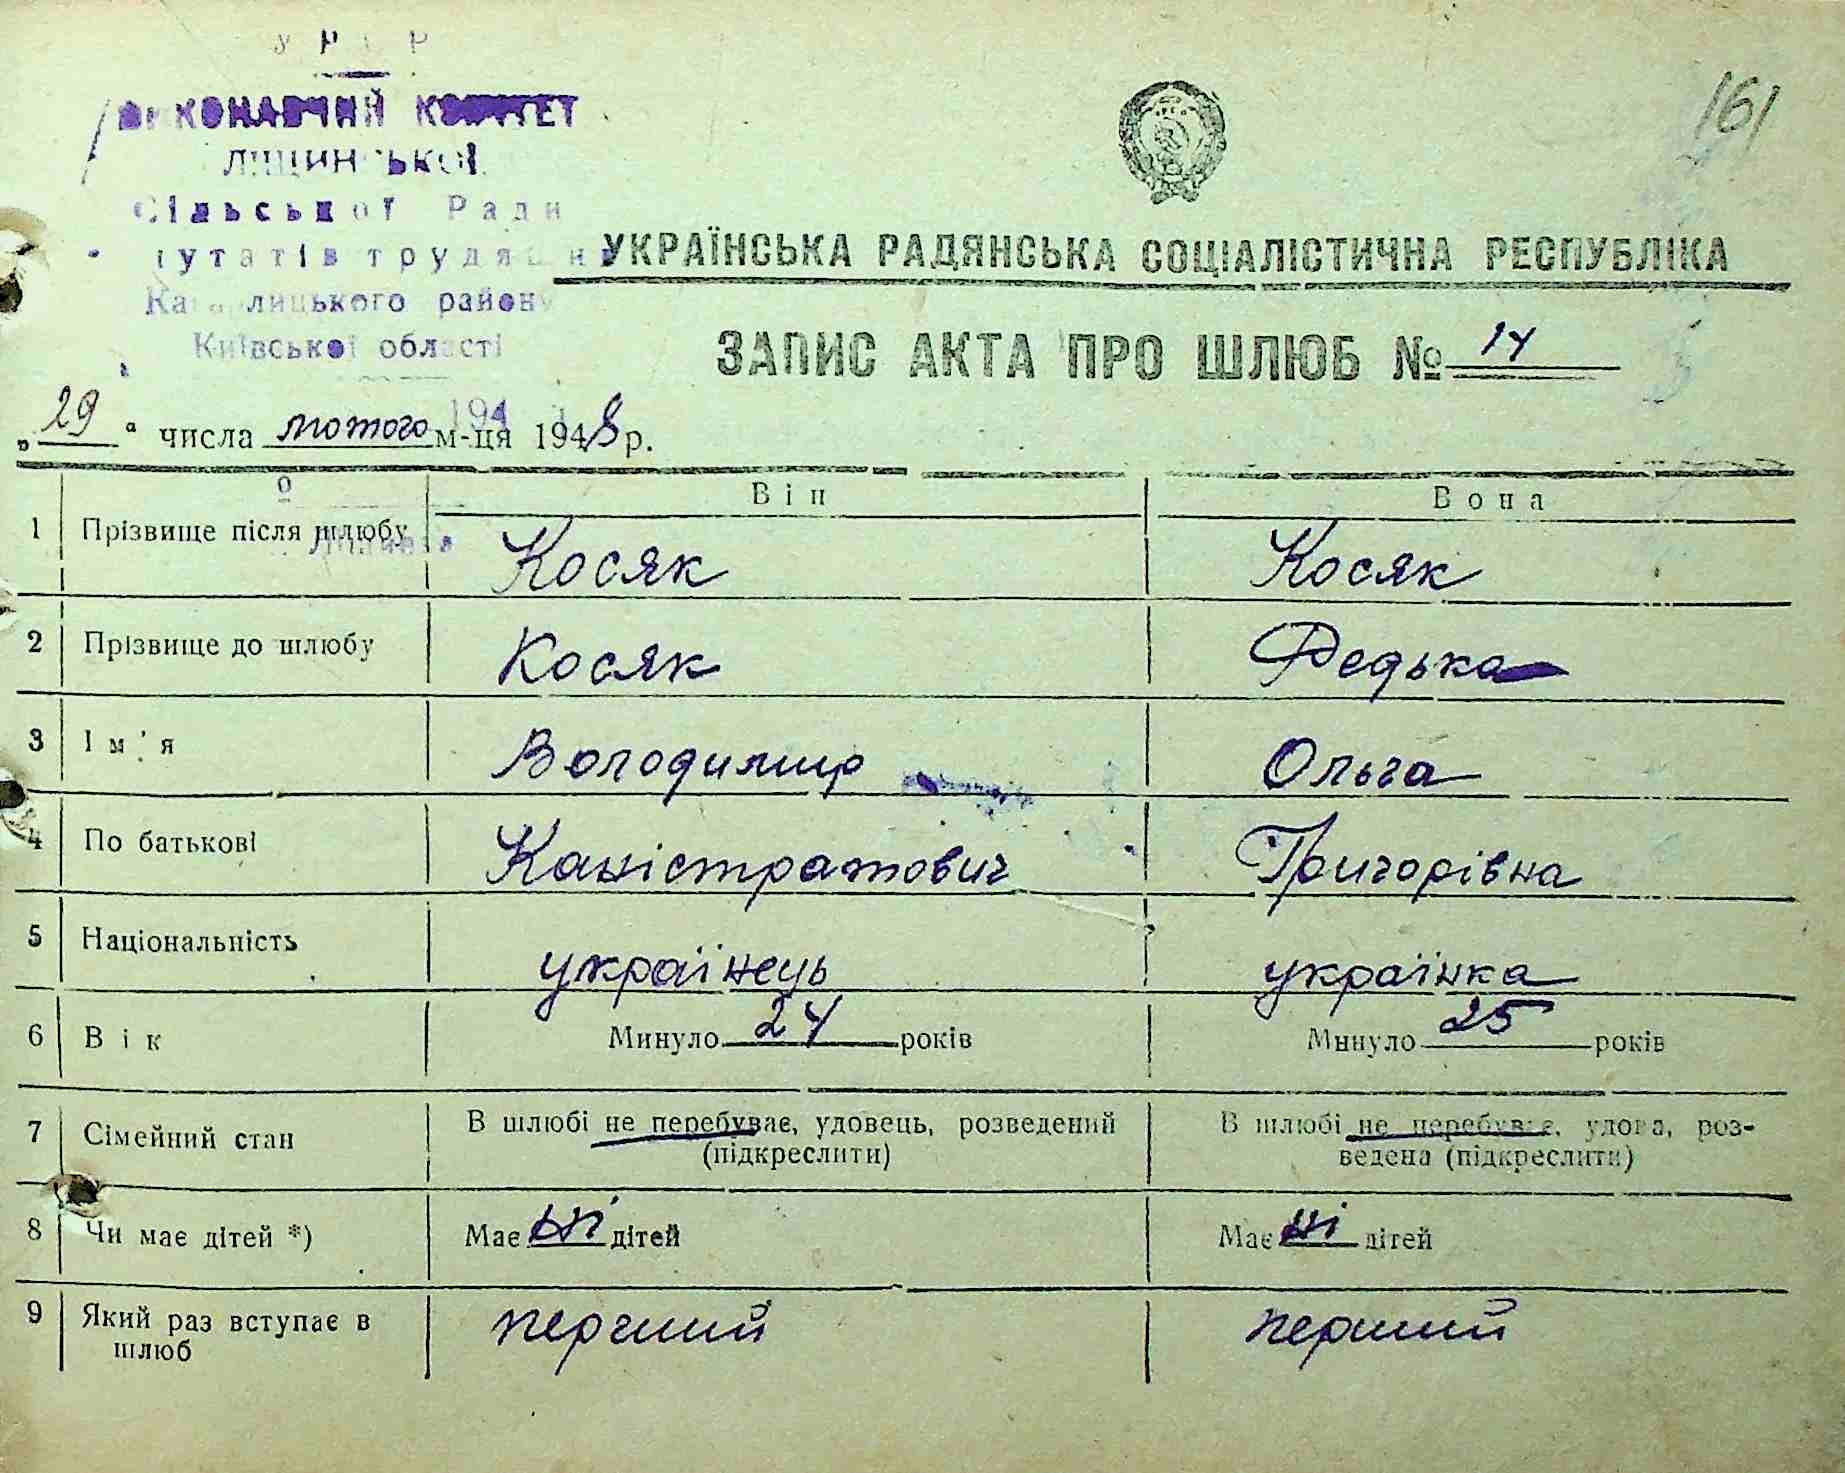 У Р С Р
ВИКОНАВЧИЙ КОМІТЕТ
161
Сільської Ради
Кагарлицького району
Київської області
УКРАЇНСЬКА РАДЯНСЬКА СОЦІАЛІСТИЧНА РЕСПУБЛІКА
ЗАПИС АКТА ПРО ШЛЮБ № 14
194
„29“ числа лютого м-ця 1948 р.
Він Вона
1 Прізвище після шлюбу Косяк Косяк
2 Прізвище до шлюбу Косяк Федька
3 Ім'я Володимир Ольга
4 По батькові Каністратович Григорівна
5 Національність українець українка
6 Вік Минуло 24 років Минуло 25 років
7 Сімейний стан В шлюбі не перебуває, удовець, розведений В шлюбі не перебуває, удова, роз-
(підкреслити) ведена (підкреслити)
8 Чи має дітей *) Має ні дітей Має ні дітей
9 Який раз вступає в перший перший
шлюб